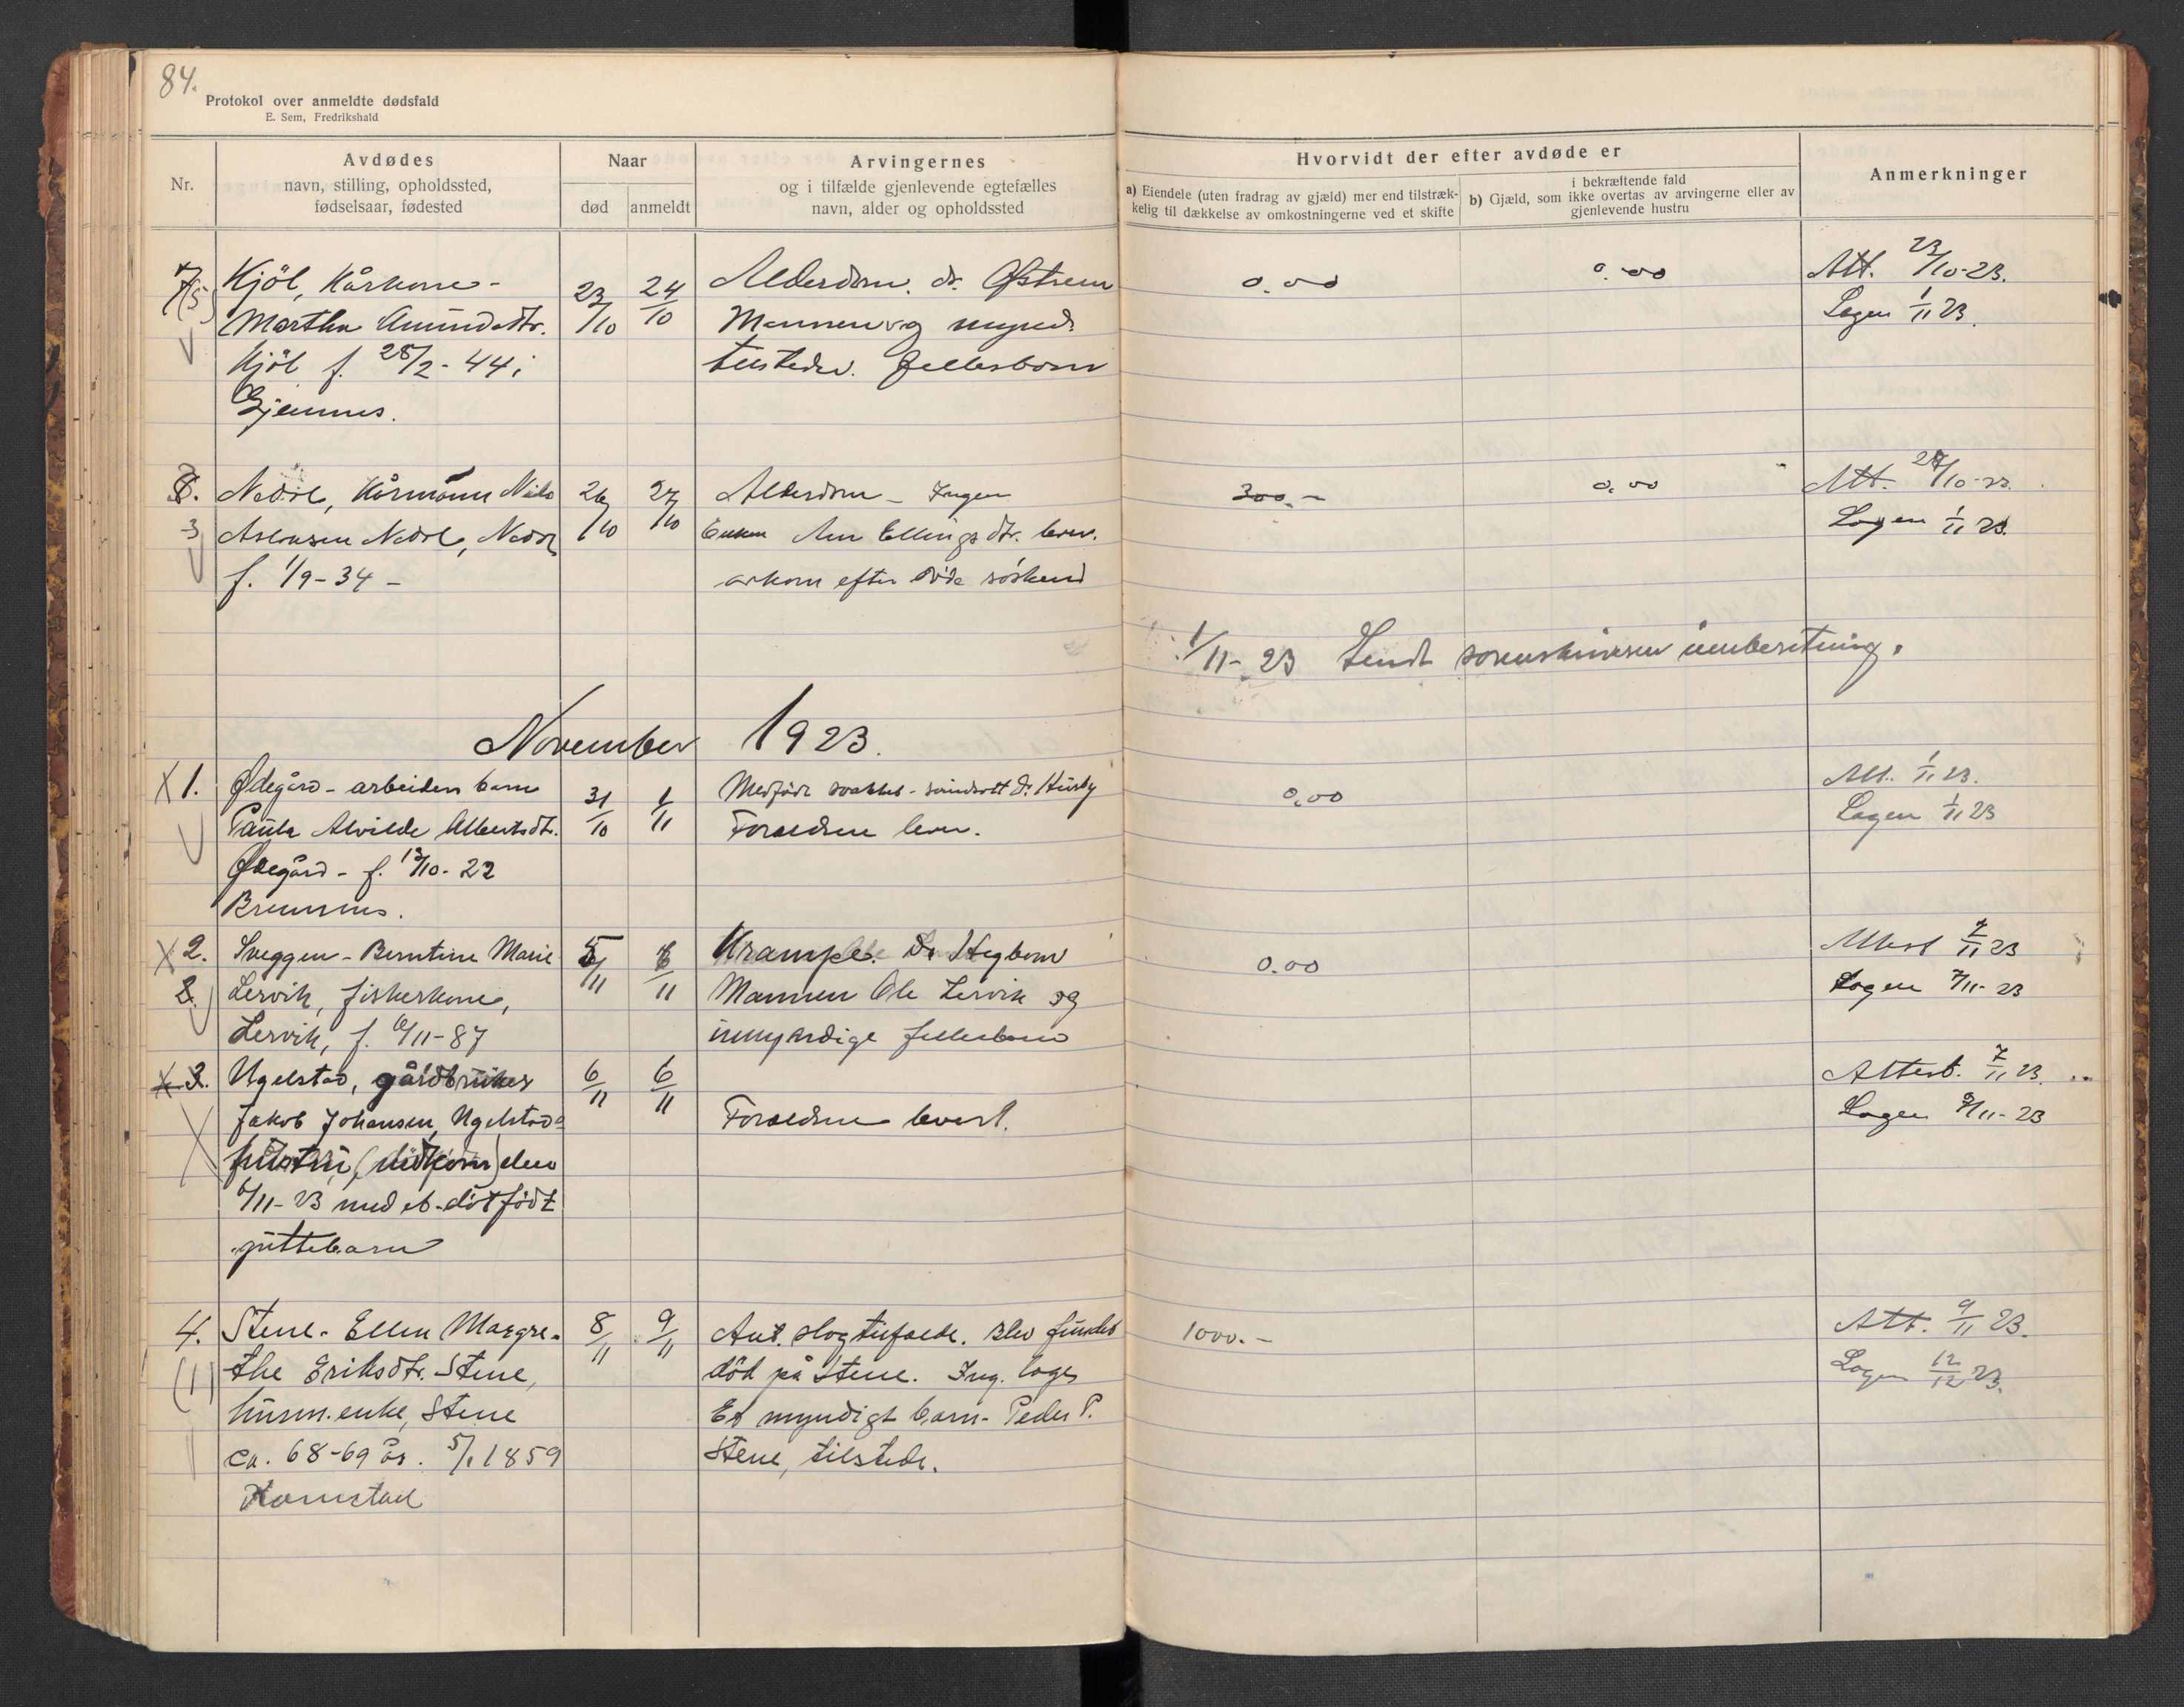 84.
Protokol over anmeldte dødsfald
E. Sem, Fredrikshald
Nr.
Avdødes
navn, stilling, opholdssted,
fødselsaar, fødested
Naar
død
anmeldt
Arvingernes
og i tilfælde gjenlevende egtefælles
navn, alder og opholdssted
Hvorvidt der efter avdøde er
a) Eiendele (uten fradrag av gjæld) mer end tilstræk-
kelig til dækkelse av omkostningerne ved et skifte
i bekræftende fald
b) Gjæld, som ikke overtas av arvingerne eller av
gjenlevende hustru
Anmerkninger
7 (5)
Kjøl, Kårkone -
Martha Amundsdtr.
Kjøl f. 28/2 - 44 i
Gjemnes.
23/10
24/10
Alderdom. dr. Østrem
Mannen og mynd.
tilstede. fellesbarn
0.00
0.00
Att. 23/10-23.
Lagen 1/11 23.
8.
3
Nedol, Kårmann Nils
Aslaksen Nedol, Nedol
f. 1/9 - 34 -
26/10
27/10
Alderdom - Ingen
Enken Ellingsdtr. lever.
avkom efter døde søskend
300.-
0.00
Att. 27/10-23.
Lagen 1/11 23.
1/11 - 23 Sendt sorenskriveren innberetning.
November 1923.
X 1.
Ødegård - arbeider barn
Paula Alvilde Albertsdtr.
Ødegård - f. 12/10 - 22
Bremsnes.
31/10
1/11
Medfødt svakhet - dr. Husby
Foreldrene lever.
0,00
Att. 1/11 23.
Lagen 1/11 23
X 2.
2.
Sveggen - Berntine Marie
Lervik, fiskerkone,
Lervik, f. 6/11 - 87
5/11
6/11
Krampe. Dr. Hegbom
Mannen Ole Lervik og
umyndige fellesbarn
0.00
Attest 7/11 23
Lagen 7/11 - 23
X 3.
Ugelstad, gårdbruker
Jakob Johansen Ugelstads
hustru, (nedkom) den
6/11 - 23 med et dødfødt
guttebarn
6/11
6/11
Foreldrene lever.
Attest. 7/11 23.
Lagen 9/11 - 23
4.
(1)
Stene - Ellen Margre-
the Eriksdtr. Stene,
husm. enke, Stene
ca. 68-69 år. 5/1 1859
Kornstad
8/11
9/11
Ant. slagtilfælde. Blev fundet
död på Stene. Ing. læge
Et myndigt barn - Peder P.
Stene, tilstede.
1000.-
Att. 9/11 23.
Lagen 12/12 23.